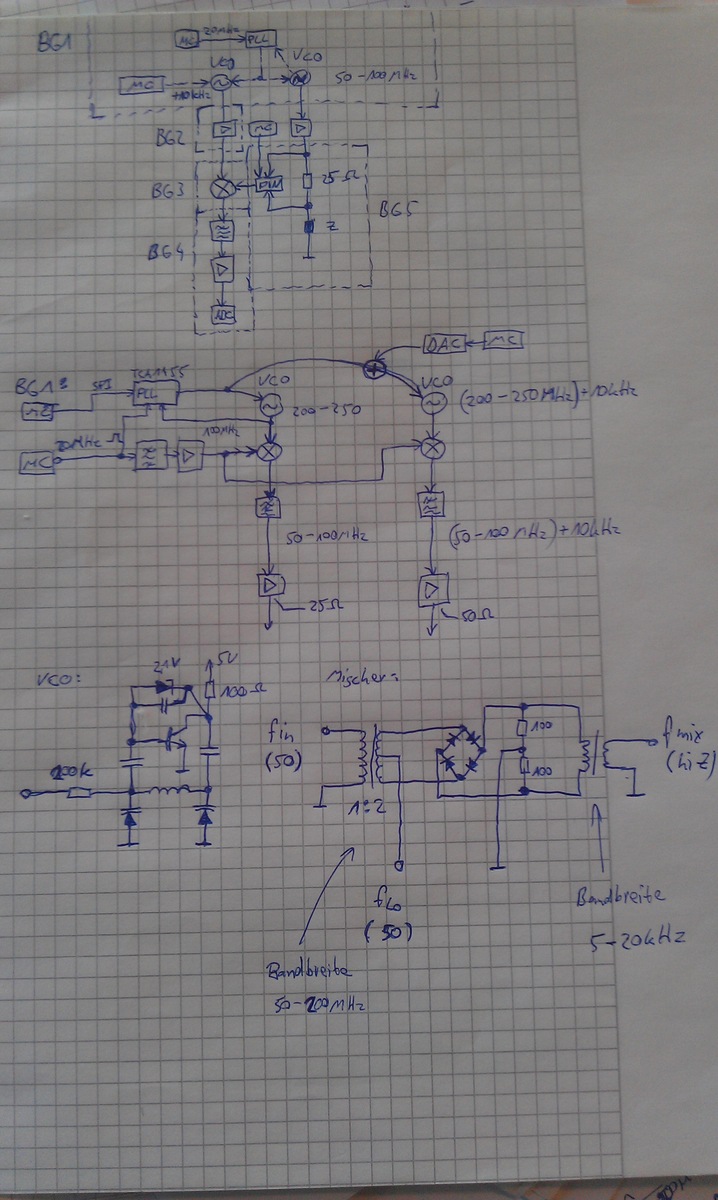 BG1
MC
20MHz
PLL
VCO
VCO
MC
+10kHz
50-100MHz
BG2
MC
BG3
25Ω
BG5
BG4
Z
ADC
DAC
MC
BG1:
SPI
PLL
VCO
VCO
MC
200-250
(200-250MHz)+10kHz
20MHz
100MHz
MC
50-100MHz
(50-100MHz)+10kHz
25Ω
50Ω
VCO:
5V
100Ω
Mischer:
fin
(50)
100
100
fmix
(hiZ)
200k
1:2
fLo
(50)
Bandbreite
5-20kHz
Bandbreite
50-200MHz